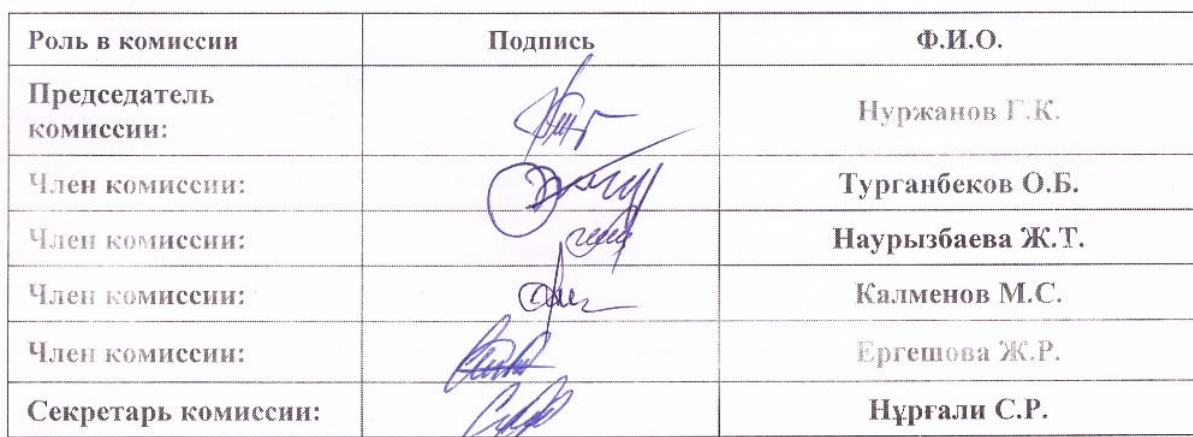 Роль в комиссии Подпись Ф.И.О.
Председатель
комиссии: Нуржанов Г.К.
Член комиссии: Турганбеков О.Б.
Член комиссии: Наурызбаева Ж.Т.
Член комиссии: Калменов М.С.
Член комиссии: Ергешова Ж.Р.
Секретарь комиссии: Нұрғали С.Р.